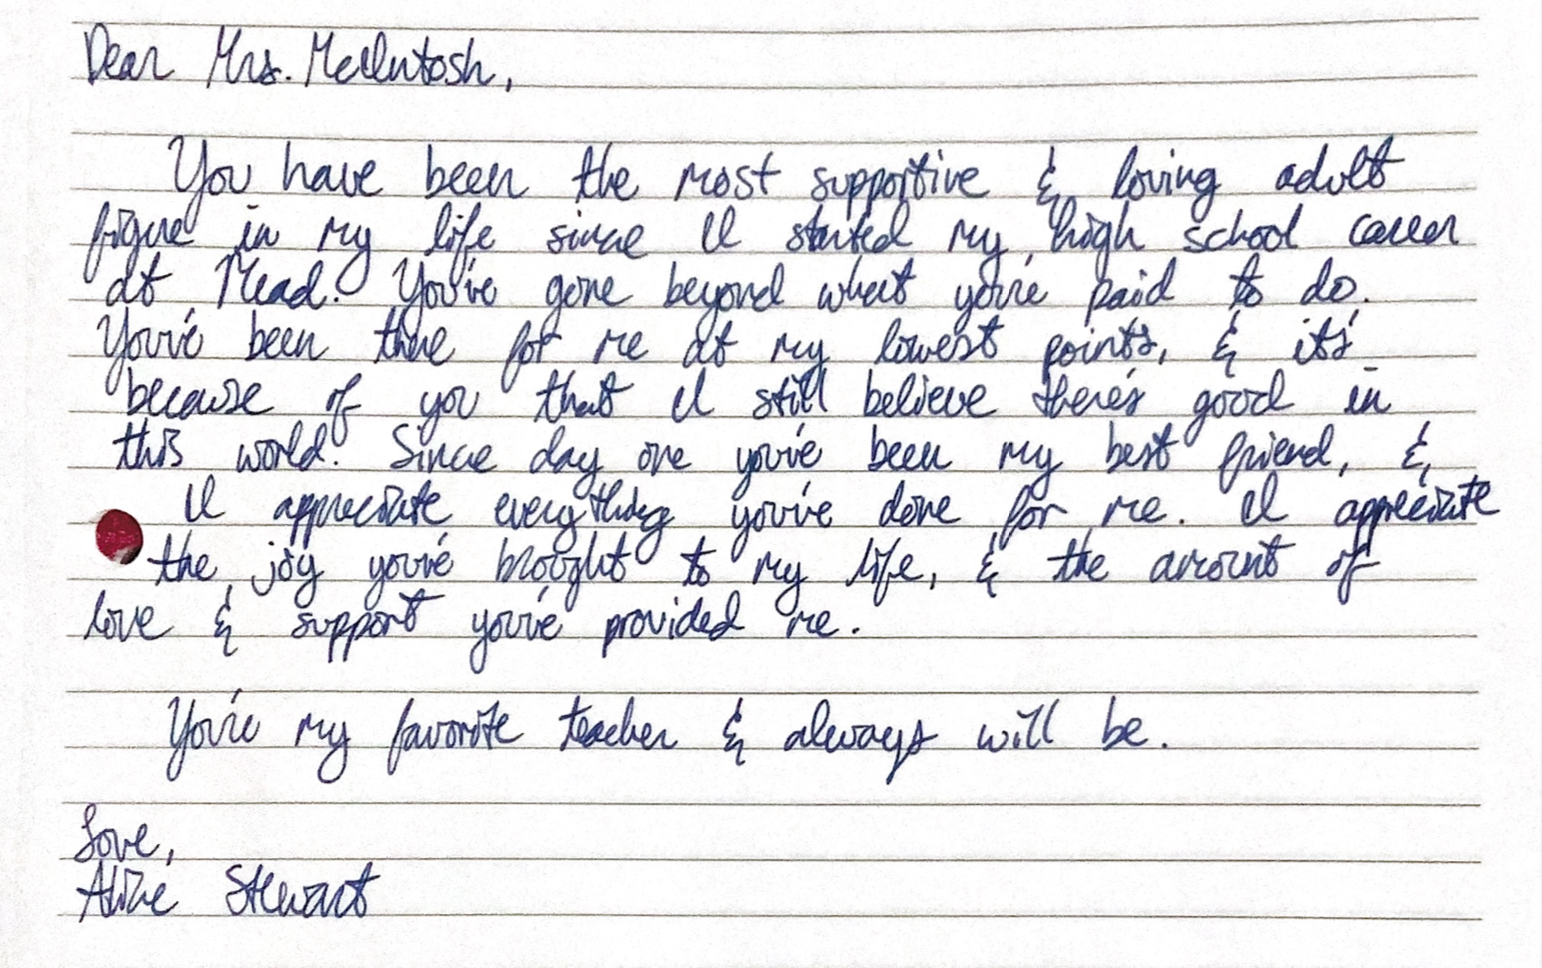 Dear Mrs. McIntosh,
You have been the most supportive & loving adult
figure in my life since I started my high school career
at Mead. You've gone beyond what you're paid to do.
You've been there for me at my lowest points, & it's
because of you that I still believe there's good in
this world. Since day one you've been my best friend, &
I appreciate everything you've done for me. I appreciate
the joy you've brought to my life, & the amount of
love & support you've provided me.
You're my favorite teacher & always will be.
Love,
Alice Stewart